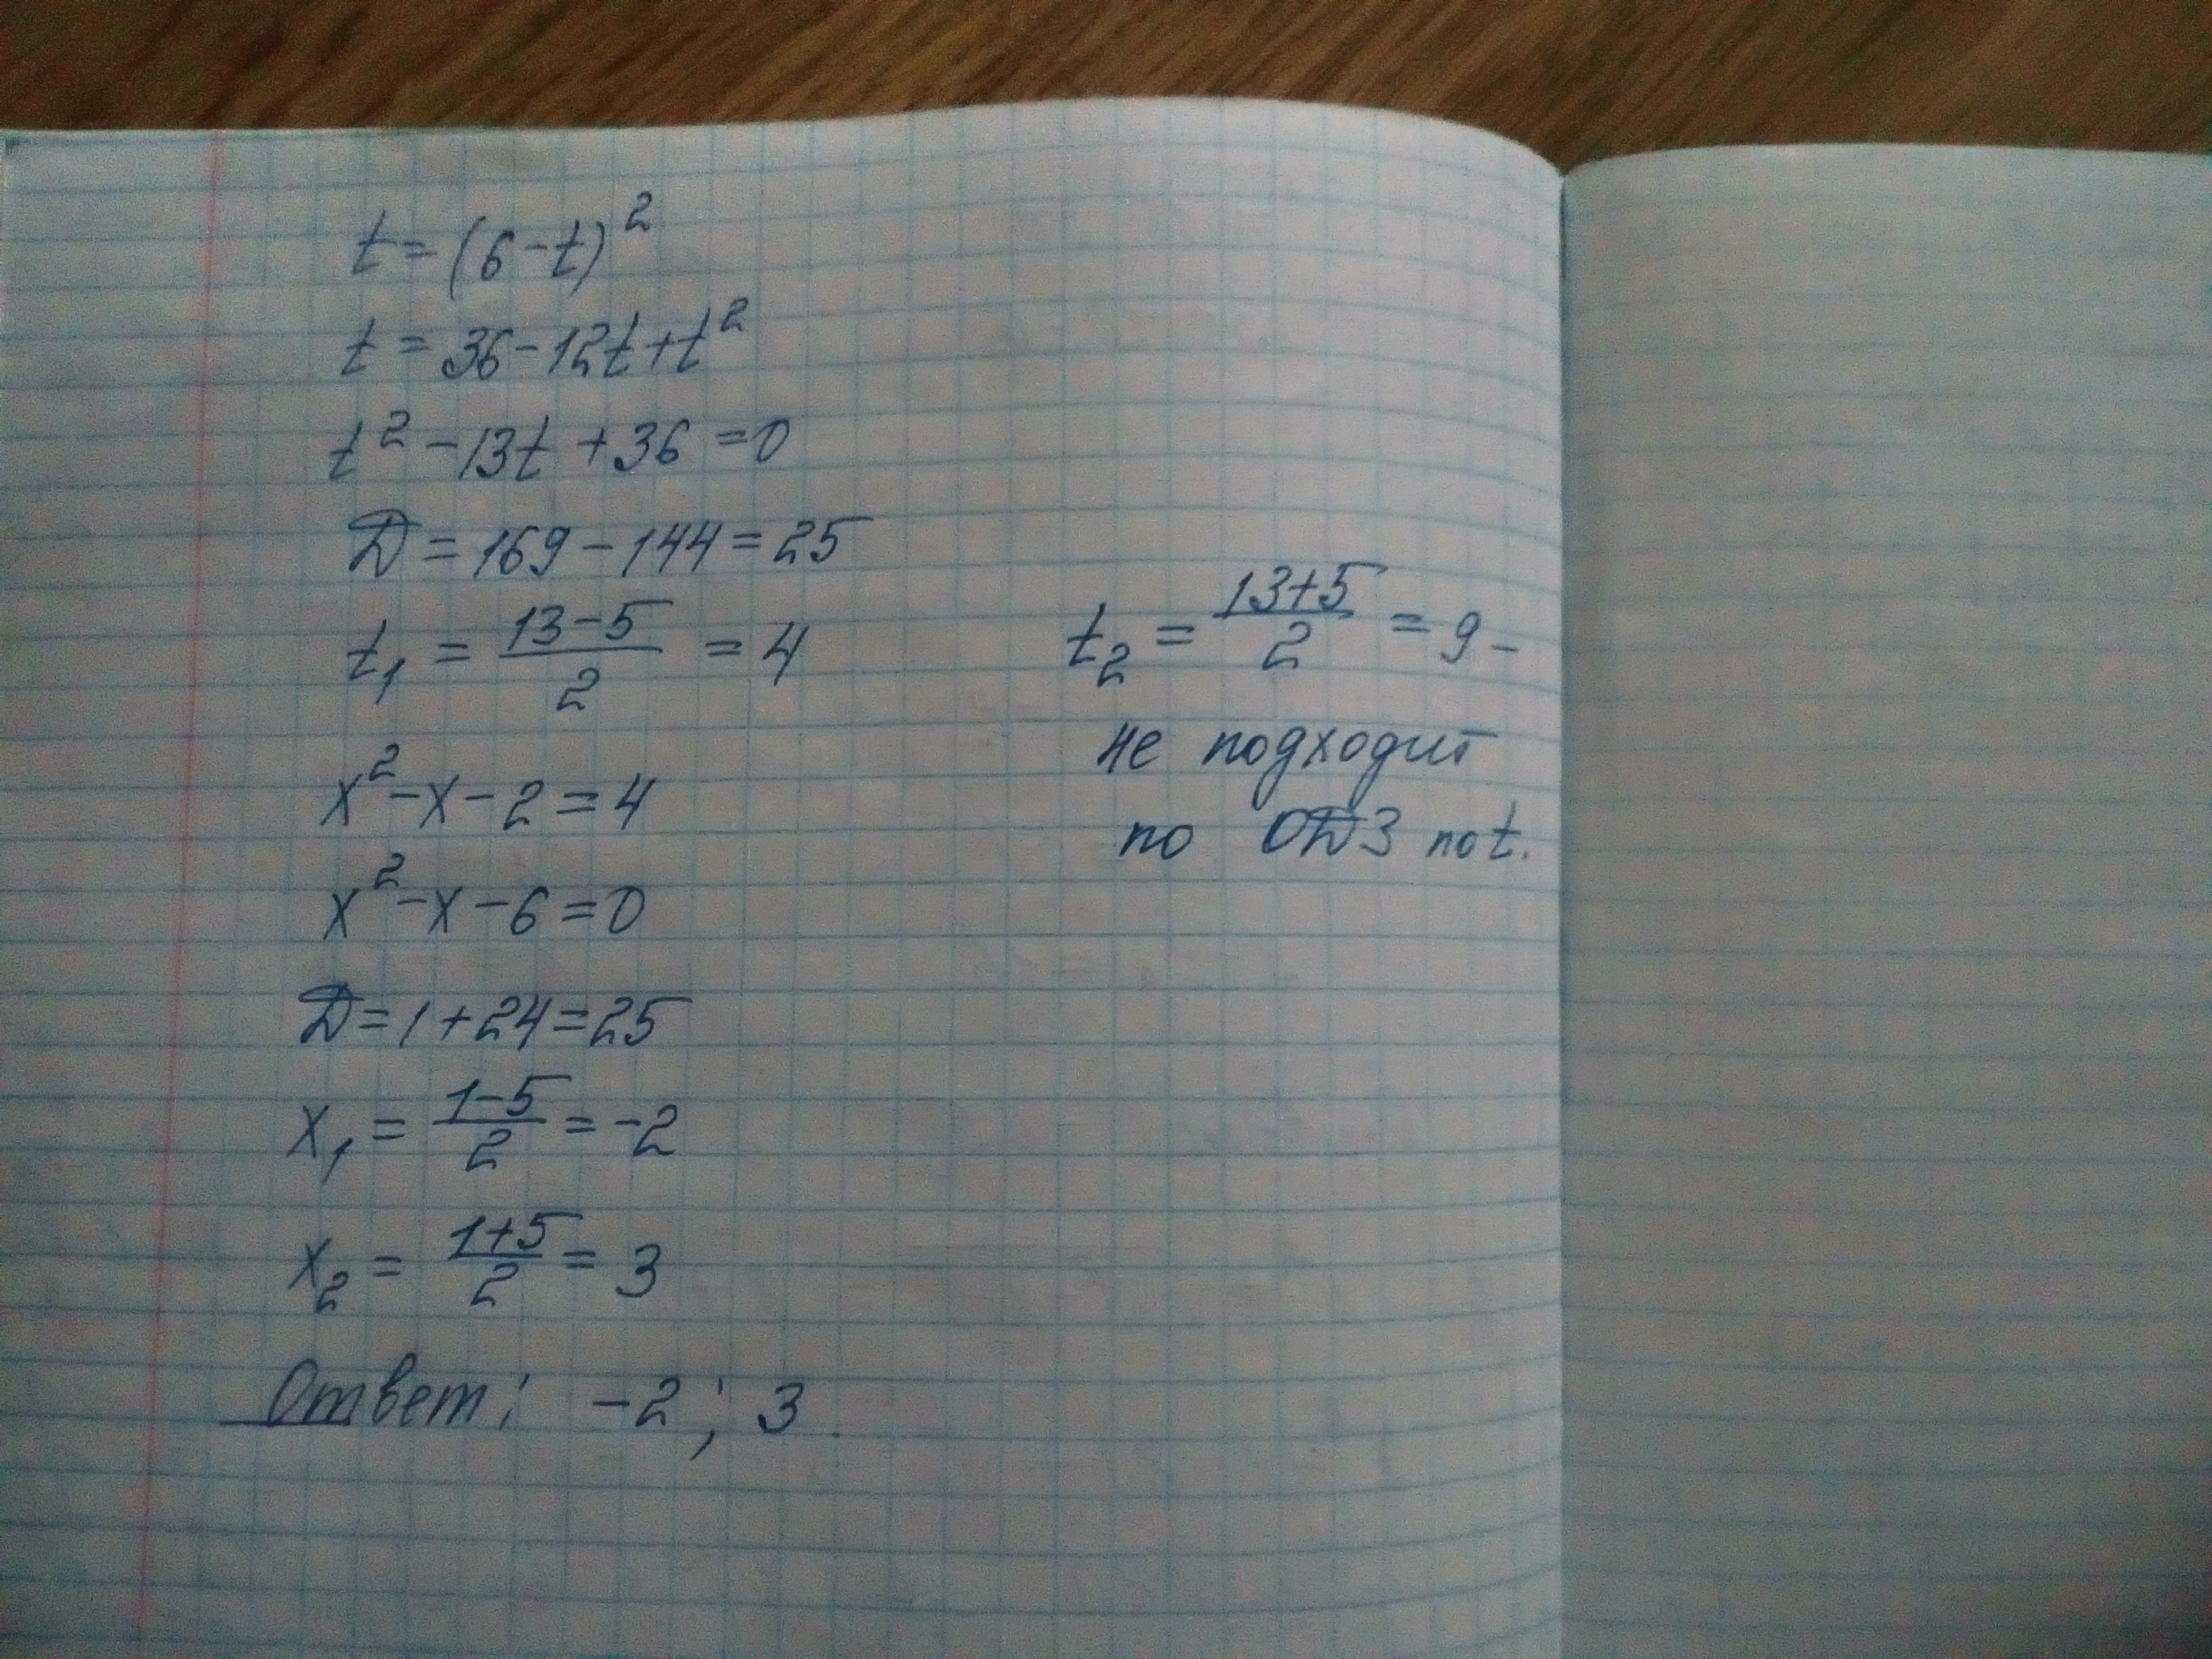 t = (6-t)²
t = 36-12t+t²
t² -13t +36 =0
D = 169 - 144 = 25
t₁ = (13-5)/2 = 4
t₂ = (13+5)/2 = 9 -
не подходит
по ОДЗ по t.
x² - x - 2 = 4
x² - x - 6 = 0
D = 1 + 24 = 25
x₁ = (1-5)/2 = -2
x₂ = (1+5)/2 = 3
Ответ: -2; 3